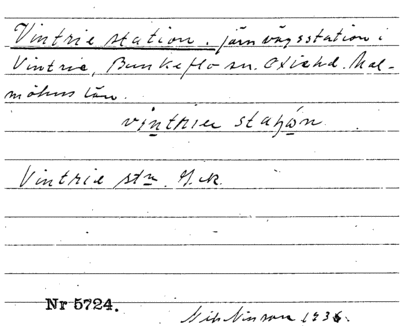 Vintrie station. järnvägsstation i
Vintrie, Bunkeflo sn. Oxie hd. Mal-
möhus län.
vintrier
Vintrie stn
Nr 5724.
1936.